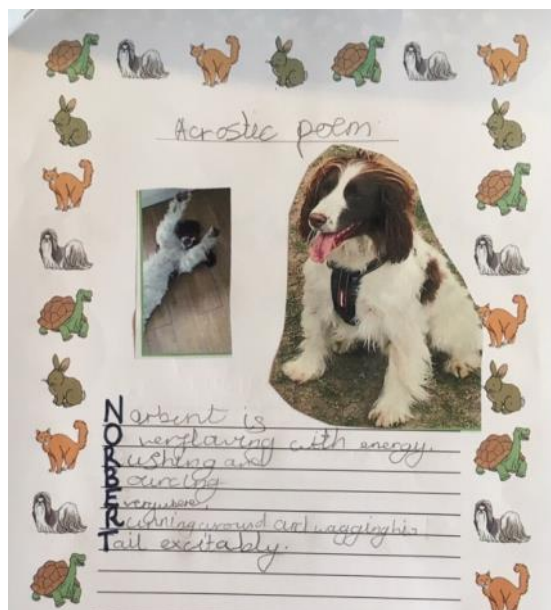 Acrostic poem
Norbert is
Overflowing with energy.
Rushing and
Bouncing
Everywhere,
Running around and wagging his
Tail excitably.